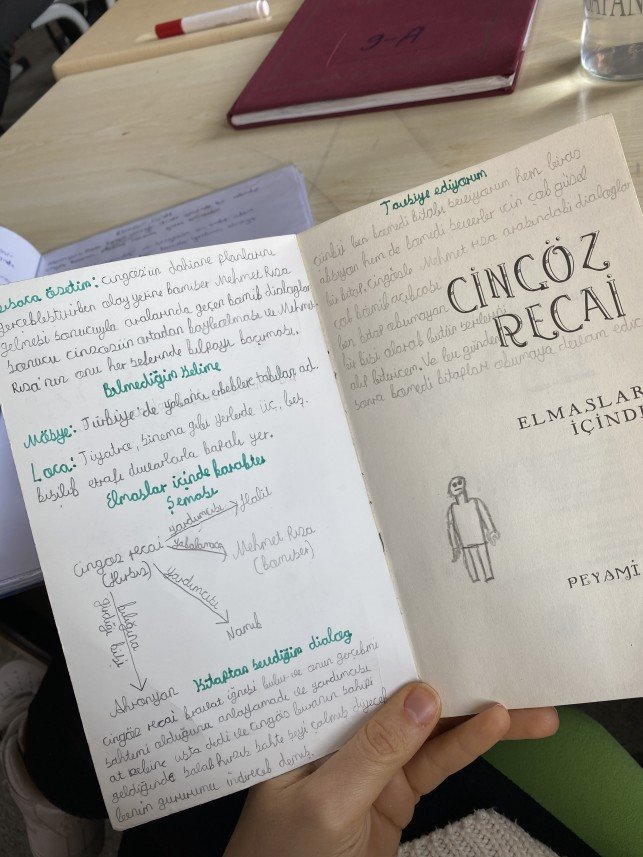 9-A
Kısaca Özetim: Cingöz'ün dahiane planlarını
gerçekleştirirken olay yerine komiser Mehmet Rıza
gelmesi sonucuyla aralarında geçen komik dialoglar
sonucu cingözün ortadan kaybolması ve Mehmet
Rıza'nın onu her seferinde kılpayı kaçırması.
Bilmediğim kelime
Mösyö: Türkiye'de yabancı erkeklere takılan ad.
Loca: Tiyatro, sinema gibi yerlerde üç, beş
kişilik etrafı duvarlarla kapalı yer.
Elmaslar içinde karakter
Şeması
Cingöz recai
(Hırsız)
yardımcısı
Halit
yakalamaca
Mehmet Rıza
(komiser)
yardımcısı
Namık
kılığına
girdiği kişi
Ahronyan
Kitaptan sevdiğim dialog
Cingöz recai kravat iğnesi bulur ve onun gerçekmi
sahtemi olduğunu anlayamadı ve yardımcısı
at gelsine usta dedi ve Cingöz buranın sahibi
geldiğinde salak hırsız sahte şeyi çalmış diyecek
benim gururumu indirecek demiş.
Tavsiye ediyorum
çünkü ben komedi kitabı seviyorum hem biraz
aksiyon hem de komedi sevenler için çok güzel
bir kitap, Cingözle Mehmet Rıza arasındaki dialoglar
çok komik açıkcası
ben kitap okumayan
bir kişi olarak bütün seriyi
alıp bitiricem. Ve bu günden
sonra komedi kitapları okumaya devam edic
CİNGÖZ
RECAİ
ELMASLAR
İÇİNDE
PEYAMİ